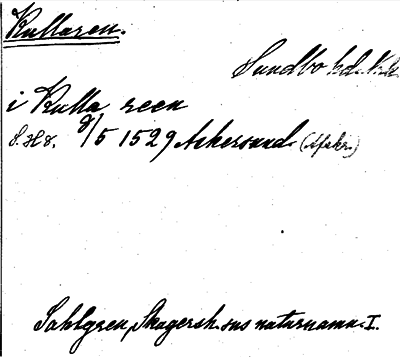 Kullaren.
Sundbo hd. Nke
i Kulla reen
S.H.H. 8/5 1529 Askersund. (Afskr.)
Sahlgren, Skagersh. sns naturnamn. I.